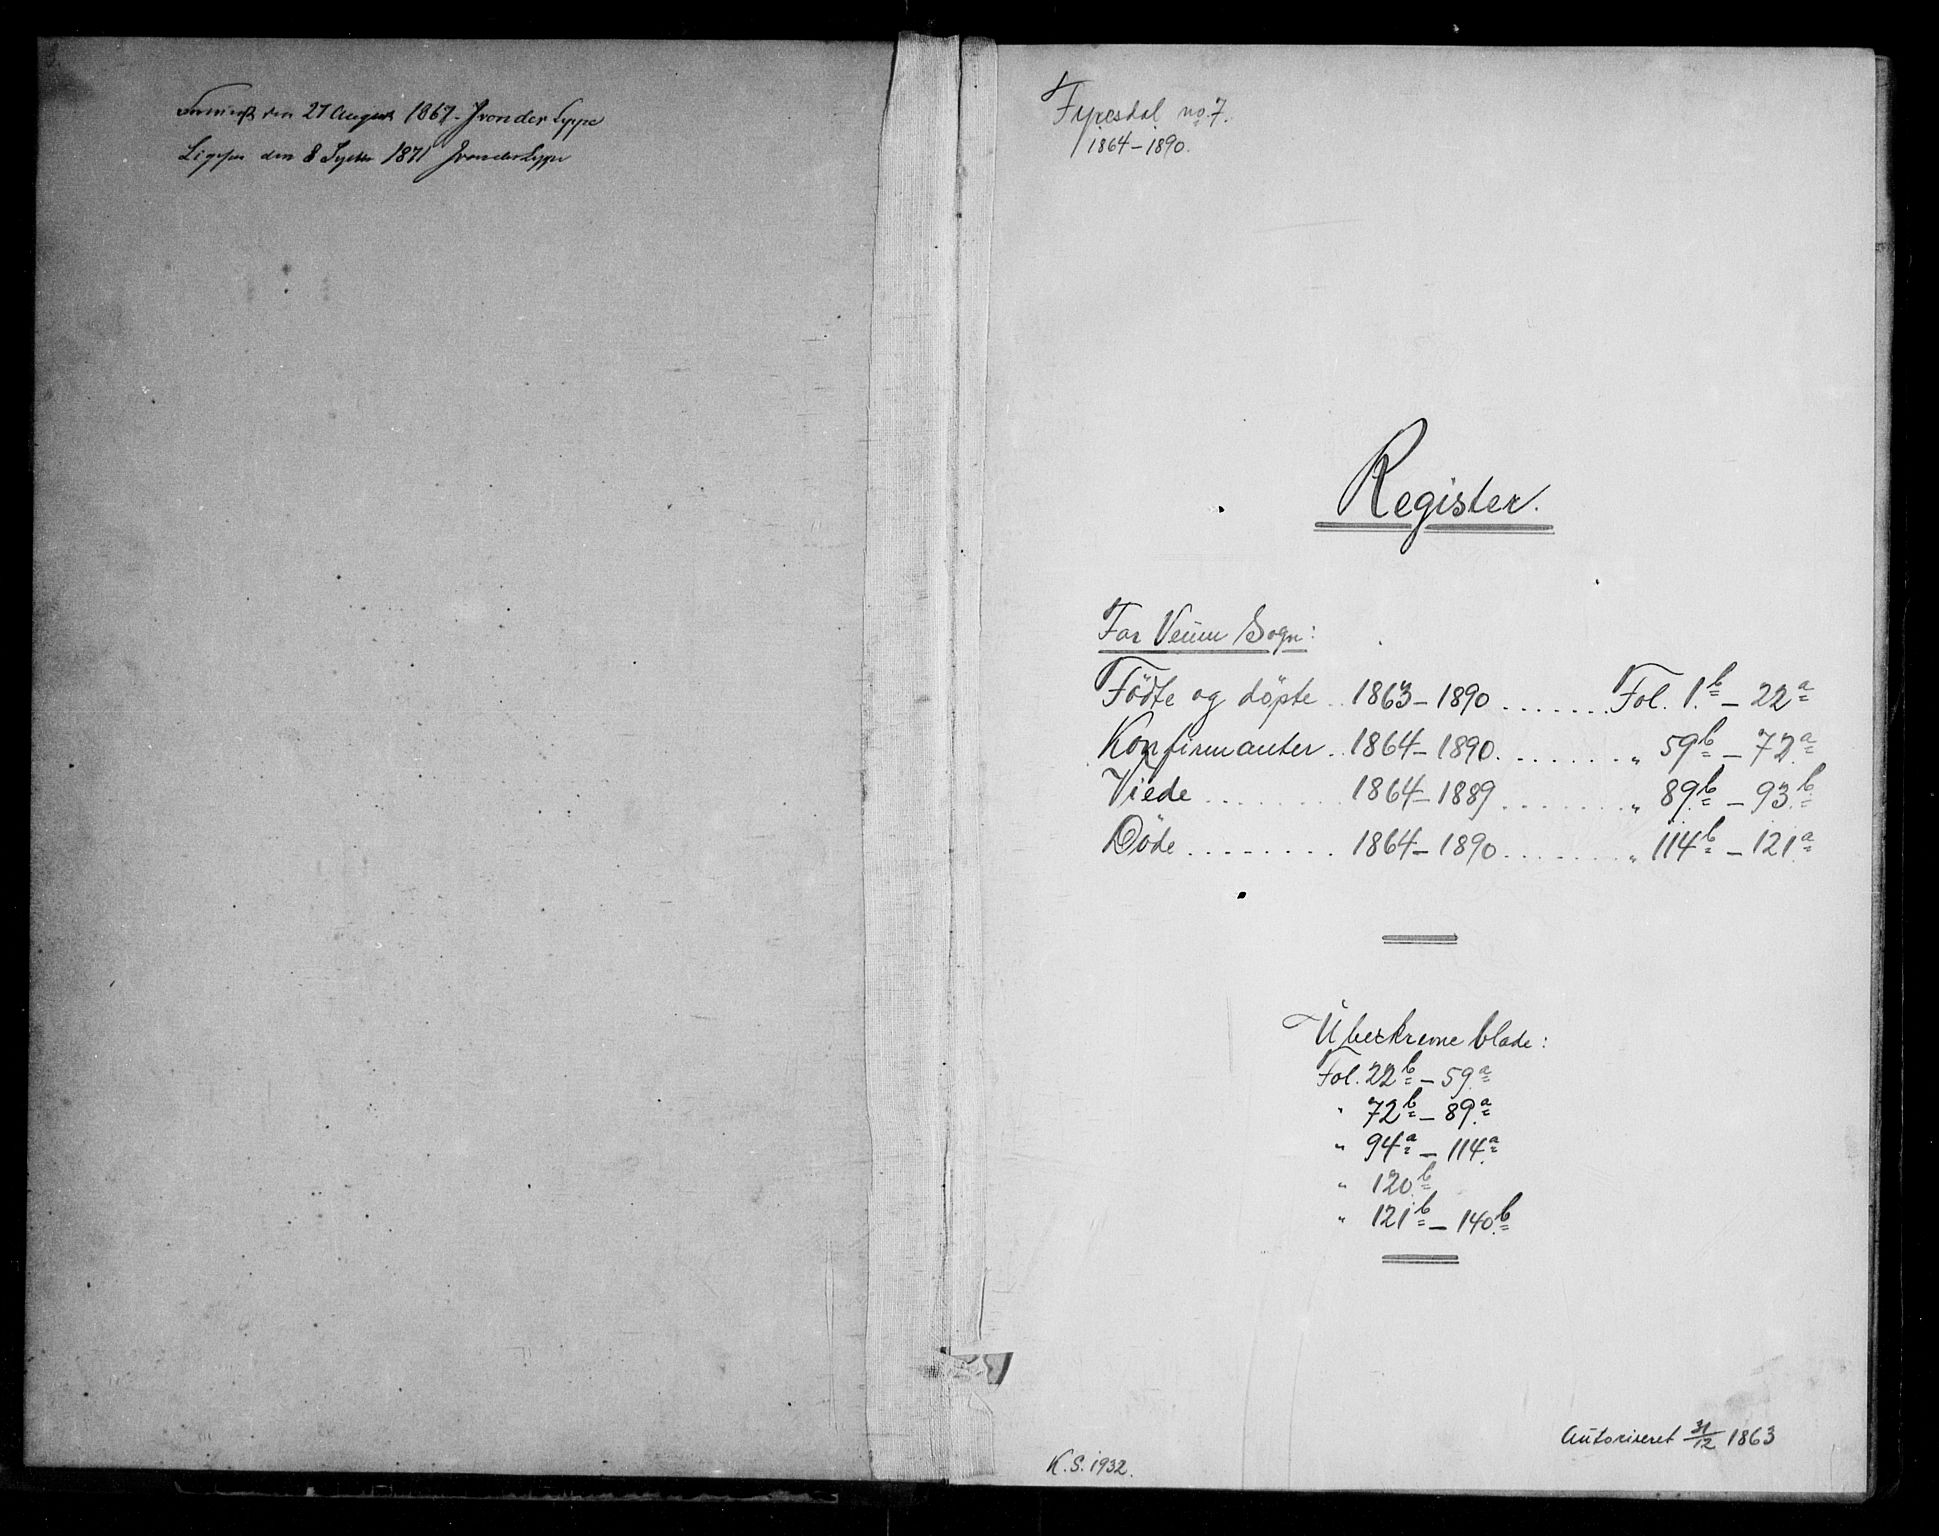 den 27 August 1867. J von der Lippe
Ligesaa den 8 Septbr 1871 J von der Lippe
Fyresdal no. 7.
1864–1890.
Register.
For Veum Sogn:
Födte og döpte .. 1863–1890 ....... Fol. 1.b – 22a
Konfirmanter .. 1864–1890 ....... " 59b – 72.a
Viede ........ 1864–1889 ....... " 89b – 93.b
Döde ........ 1864–1890 ....... " 114b – 121.a
Ubeskrevne blade:
Fol. 22b – 59.a
" 72b – 89.a
" 94a – 114.a
" 120.b
" 121b – 140.b
Autoriseret 31/12 1863
K.S. 1932.